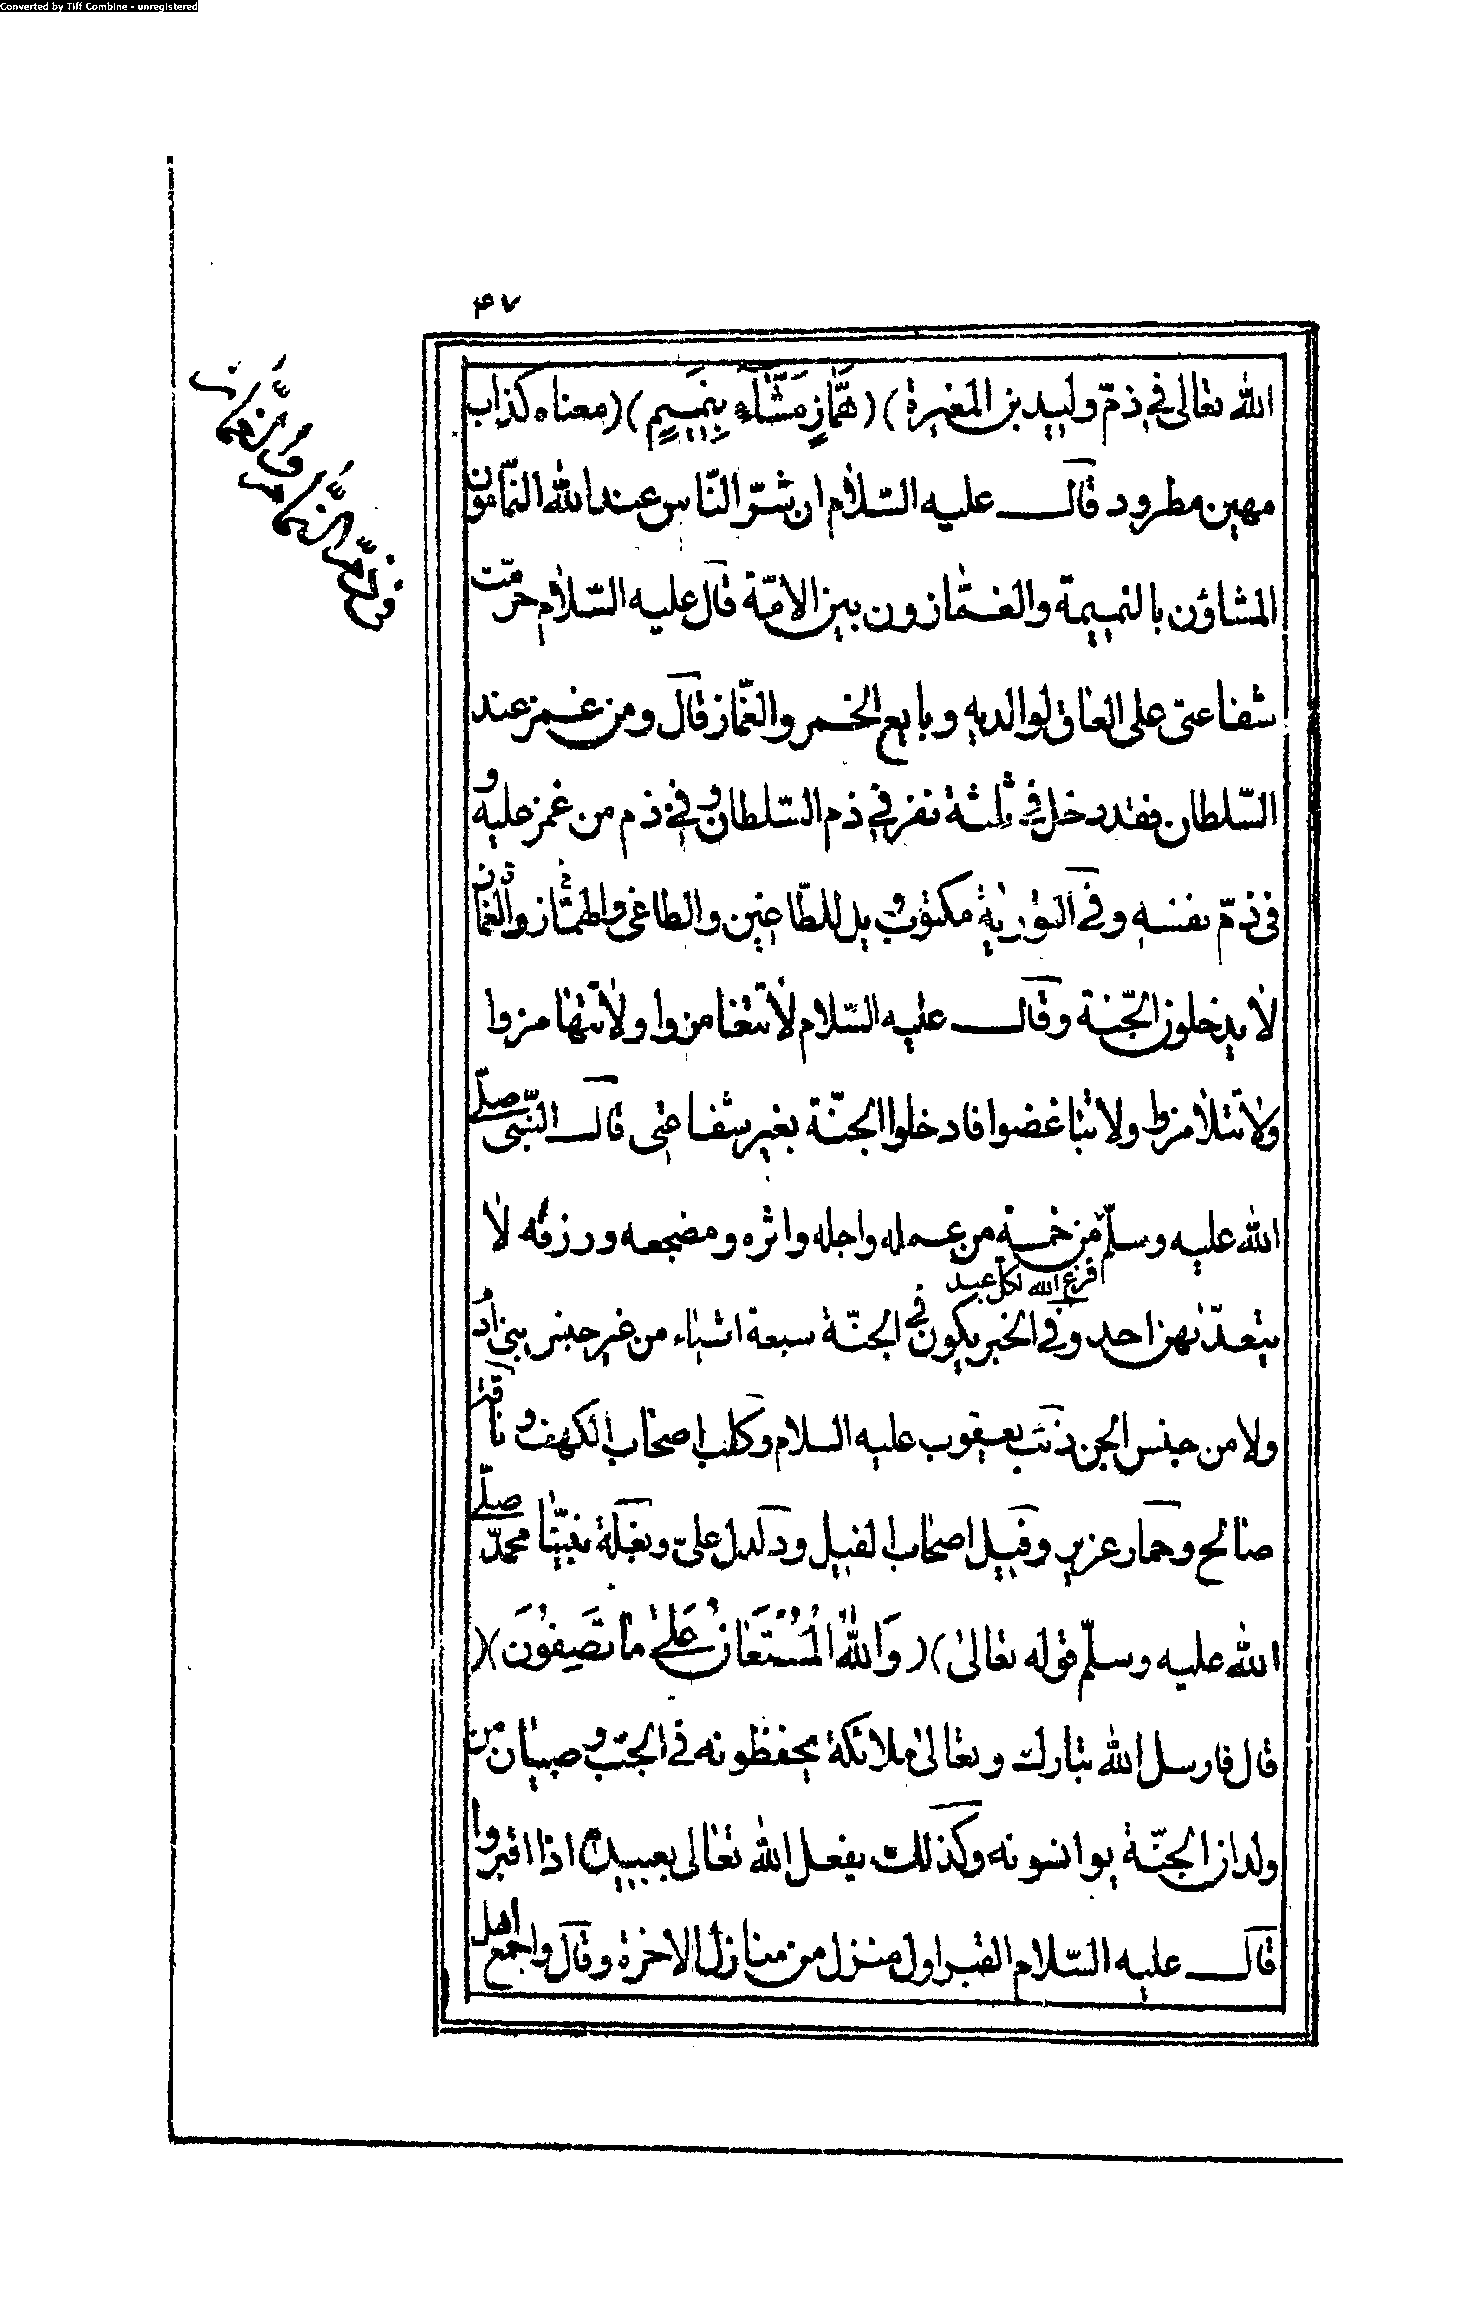 Converted by Tiff Combine - unregistered
۴۷
فی ذمّ النمّام والغمّاز
الله تعالى في ذمّ وليد بن المغيرة )( هَمَّازٍ مَشَّآءٍ بِنَمِيمٍ )( معناه كذاب
مهين مطرود قال عليه السّلام ان شرّ النّاس عند الله النّمّامون
المشاؤن بالنميمة والغمّازون بين الامّة قال عليه السّلام حرّمت
شفاعتى على العاق لوالديه وبايع الخمر والغمّاز قال ومن غمز عند
السّلطان فقد دخل في ثلثة نفر في ذم السّلطان وفي ذم من غمز عليه و
فى ذمّ نفسه وفى التورية مكتوب ويل للطّاعنين والطاغى والهمّاز والغمّاز
لا يدخلون الجنّة وقال عليه السّلام لا تتغامزوا ولا تتهامزوا
ولا تتلامزوا ولا تتباغضوا فادخلوا الجنّة بغير شفاعتى قال النّبى صلّى
الله عليه وسلّم من خمسة من عمله واجله واثره ومضجعه ورزقه لا
فرغ الله لكلّ عبد
يتعدّيهن احد وفى الخبر يكون في الجنّة سبعة اشياء من غير جنس بنى ادم
ولا من جنس الجن ذئب يعقوب عليه السلام وكلب اصحاب الكهف وناقة
صالح وحمار عزير وفيل اصحاب الفيل ودلدل علىّ وبغلة نبيّنا محمّد صلّى
الله عليه وسلّم قوله تعالى )( وَاللهُ الْمُسْتَعَانُ عَلىٰ مَا تَصِفُونَ )(
قال فارسل الله تبارك وتعالى ملائكة يحفظونه في الجبّ وصبيان من
ولدان الجنّة يوانسونه وكذلك يفعل الله تعالى بعبيده اذا اقبروا
قال عليه السّلام القبر اول منزل من منازل الاخرة وقال واجمع اهل